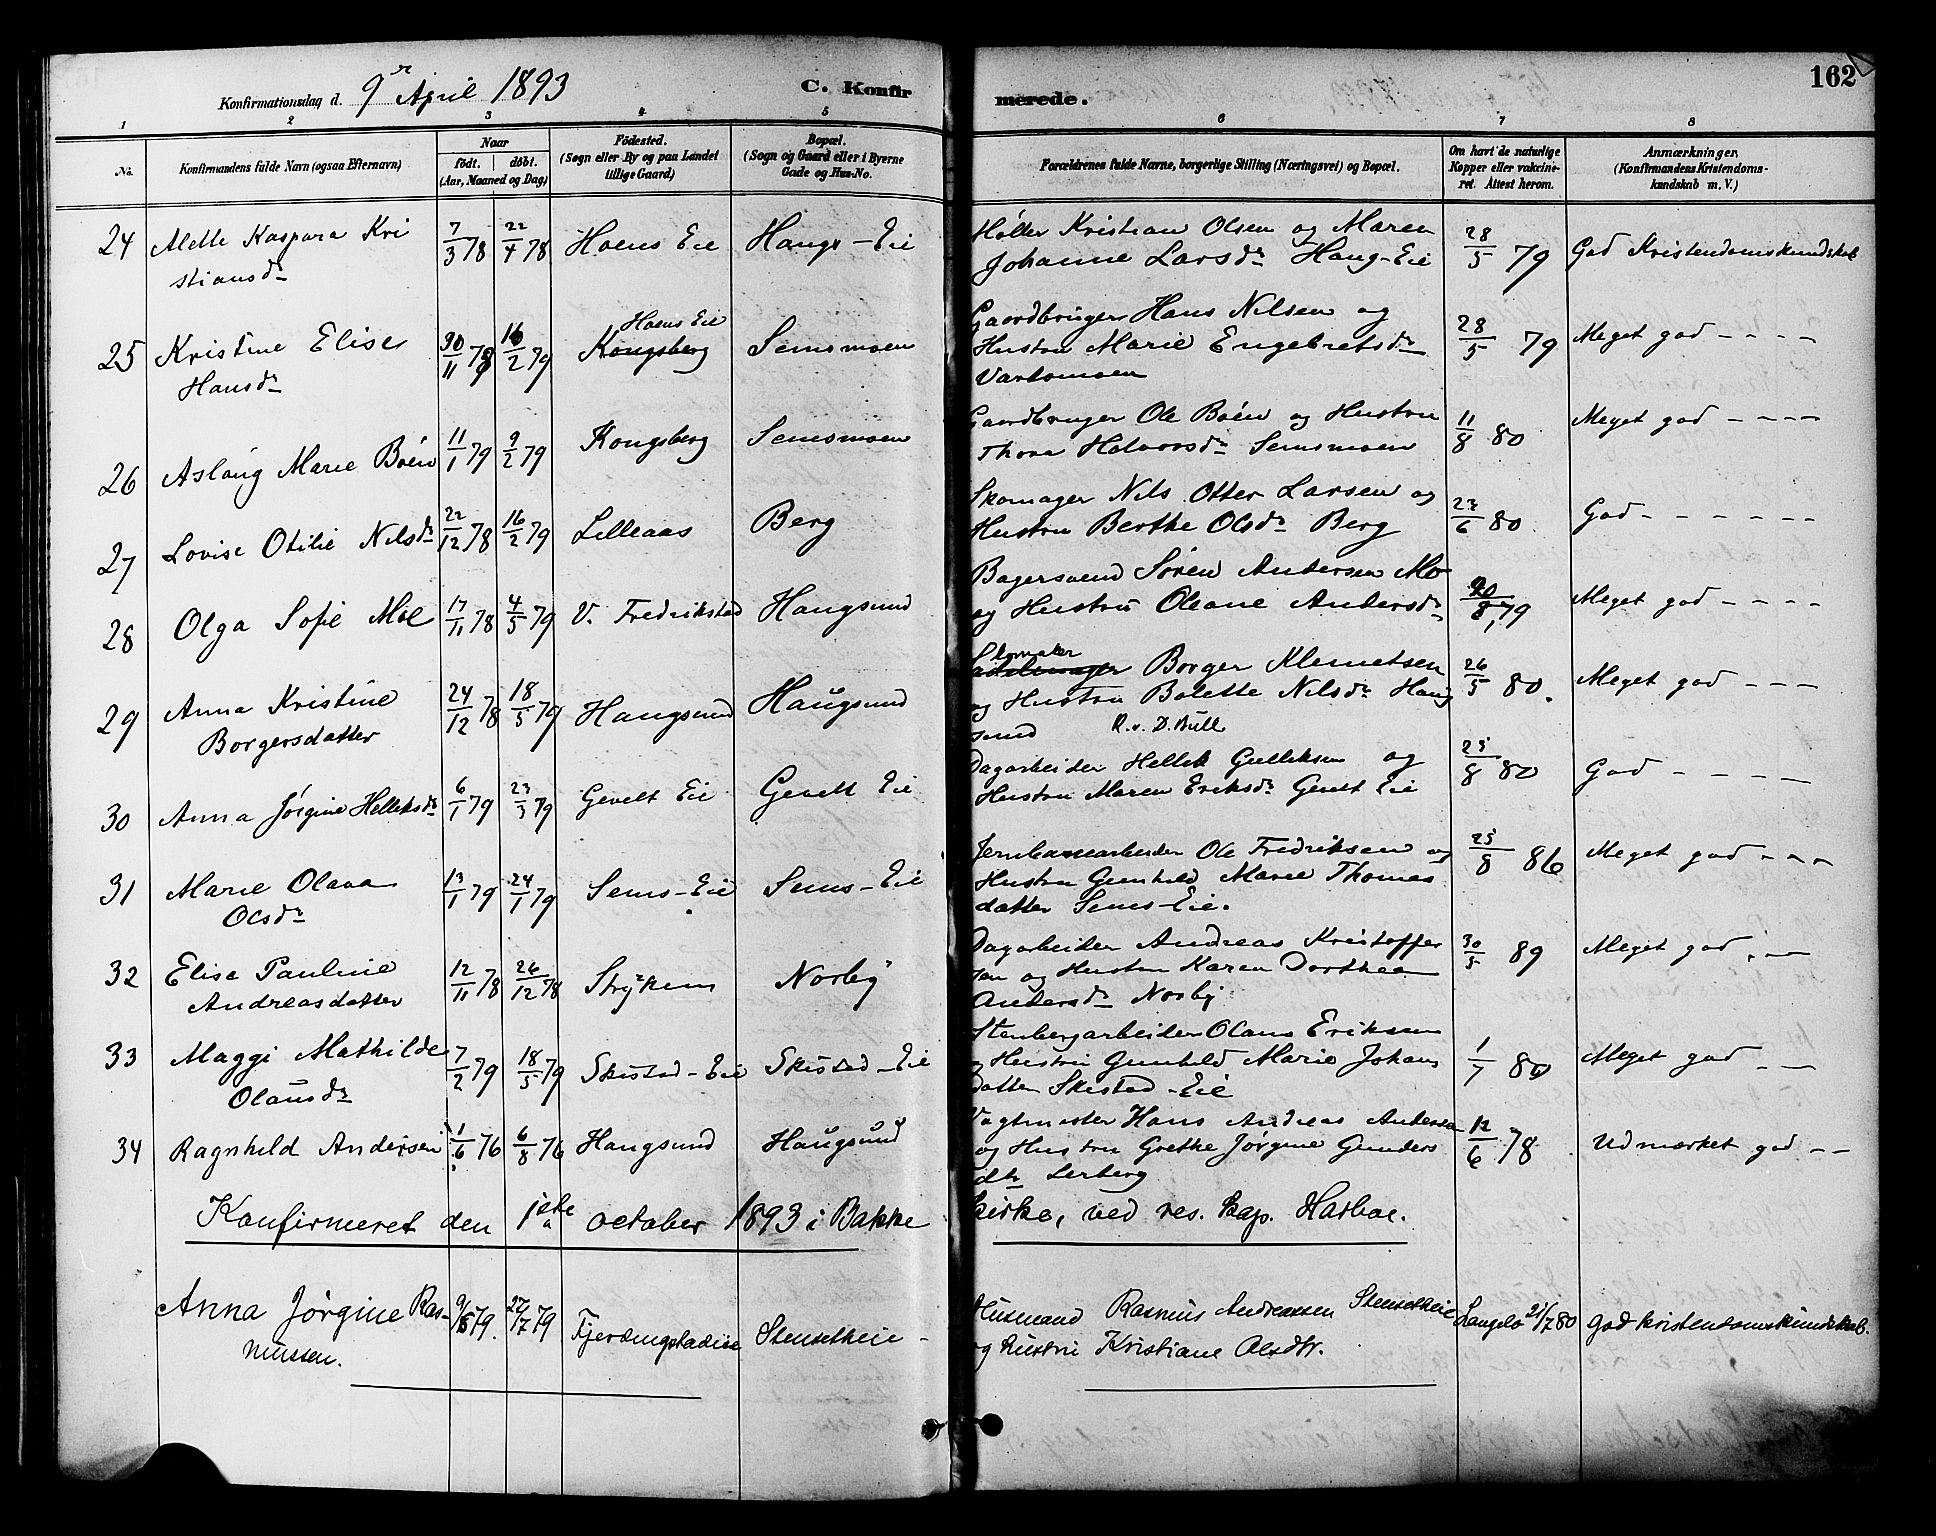 162
Konfirmationsdag d. 9de April 1893
C. Konfirmerede.
1 2 3 4 5 6 7 8
No.
Konfirmandens fulde Navn (ogsaa Efternavn)
Naar
født. døbt.
(Aar, Maaned og Dag)
Födested.
(Sogn eller By og paa Landet
tillige Gaard)
Bopæl.
(Sogn og Gaard eller i Byerne
Gade og Hus-No.
Forældrenes fulde Navne, borgerlige Stilling (Næringsvei) og Bopæl.
Om havt de naturlige
Kopper eller vakcine-
ret. Attest herom.
Anmærkninger,
(Konfirmandens Kristendoms-
kundskab m. V.)
24 Alette Kaspara Kri
stiansdr 7/3 78 22/4 78 Hoens Eie Haugs-Eie
Møller Kristian Olsen og Maren
Johanne Larsdr Haug-Eie
28/5 79 God Kristendomskundskab
25 Kristine Elise
Hansdr 30/11 78 16/2 79
Hoens Eie
Kongsberg Semsmoen
Gaardbruger Hans Nilsen og
Hustru Marie Engebretsdr
28/5 79 Meget god - - - -
26 Aslaug Marie Bøen 11/1 79 9/2 79 Kongsberg Semsmoen
Gaardbruger Ole Bøen og Hustru
Thora Halvorsdr Semsmoen
11/8 80 Meget god - - - -
27 Lovise Otilie Nilsdr 22/12 78 16/2 79 Lilleaas Berg
Skomager Nils Otter Larsen og
Hustru Berthe Olsdr Berg
23/6 80. God - - - - - -
28 Olga Sofie Moe 17/11 78 4/5 79 V. Fredrikstad Haugsund
Bagersvend Søren Andersen Mo
og Hustru Oleane Andersdr
20/8, 79 Meget god - - - -
29 Anna Kristine
Borgersdatter 24/12 78 18/5 79 Haugsund Haugsund
Skomaker Borger Klemetsen
og Hustru Bolette Nilsdr Haug
sund R. v. D. Bull
26/5 80. Meget god - - -
30 Anna Jørgine Helleksdr 6/1 79 23/3 79 Gevelt Eie Gevelt Eie
Dagarbeider Hellek Gulleksen og
Hustru Maren Eriksdr Gevelt Eie
25/8 80 God - - - - -
31 Marie Olava
Olsdr 13/1 79 24/1 79 Sems-Eie Sems-Eie
Jernbanearbeider Ole Fredriksen og
Hustru Gunhild Marie Thomas
datter Sems-Eie.
25/8 86 Meget god - - -
32 Elise Pauline
Andreasdatter 12/11 78 26/12 78 Strykens Norby
Dagarbeider Andreas Kristoffer
sen og Hustru Karen Dorthea
Andersdr Norby
30/5 89 Meget god - -
33 Maggi Mathilde
Olausdr 7/2 79 18/5 79 Skistad-Eie Skistad-Eie
Stenbergarbeider Olaus Eriksen
og Hustru Gunhild Marie Johans
datter Skistad-Eie
1/7 80 Meget god - -
34 Ragnhild Andersen 1/6 76 6/8 76 Haugsund Haugsund
Vagtmester Hans Andreas Andersen
og Hustru Grethe Jørgine Gunders
dtr Lerberg
12/6 78 Udmærket god - -
Konfirmeret den 1ste october 1893 i Bakke
kirke, ved res. kap. Harboe.
Anna Jørgine Ras-
mussen. 9/6 79. 27/7 79 Stensetheie
Husmand Rasmus Andreassen Stensetheie
og hustru Kristiane Olsdtr.
Langelo 21/7 80 god kristendomskundskab.